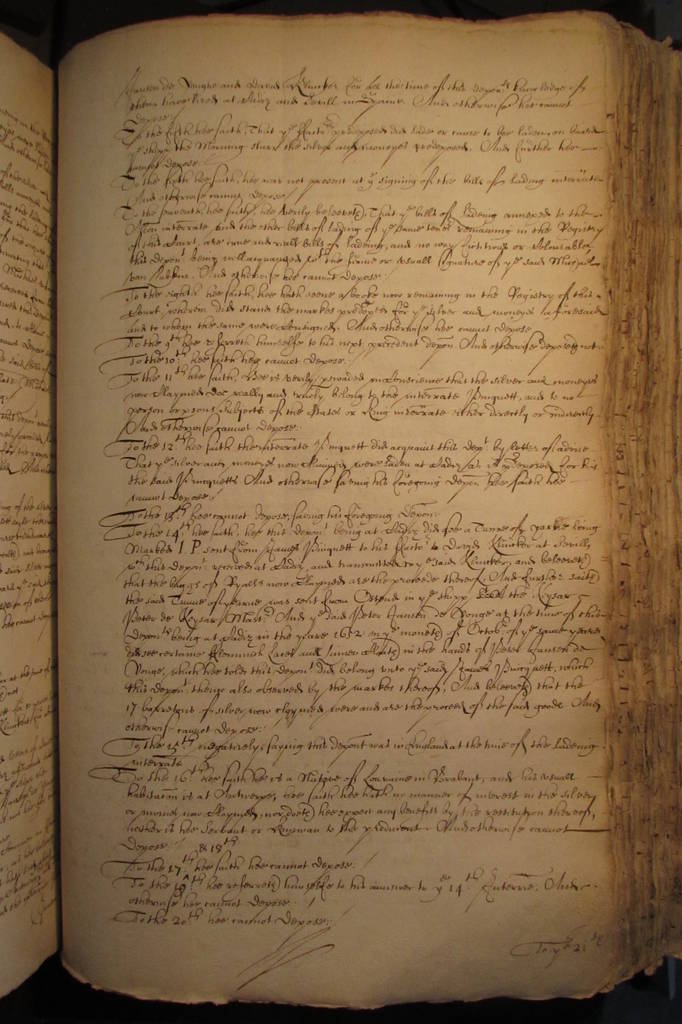 Jansen de Vonge and David Klinker for all the time of this depon.ts knowledge of
them have lived at Cadiz and Sevill in Spaine. And otherwise hee cannot
depose./
To the fifth hee saith, That ye Factors predeposed did lade or cause to bee laden on board
ye shipp the Morning starr the silver and moneyes predeposed. And further hee
cannot depose.
To the sixth hee saith, hee was not present at ye signing of the bills of lading interrate
And otherwise cannot depose./
To the seaventh, hee saith, hee verily beleeveth, That ye bills of lading annexed to the
Allon interrate, and the other bills of lading of ye same tenor remaining in the Registry
of this Court, are true and reall bills of lading, and no way fictitious or Colourable,
this depont being well acquainted wth the firme or usuall signature of ye said
van And otherwise he cannot depose.
To the eighth hee saith, hee hath seene a booke now remaining in the Registry of this
Court, wherein did stand the markes predeposed for ye silver and moneyes laforesaid
and to whom the same were consigned. And otherwise hee cannot depose
To the 9th hee referreth himselfe to his next precedent depon. And otherwise deposeth not
To the 10:th hee saith hee cannot depose.
To the 11th hee saith, Hee is verily perswaded in Conscience that the silver and moneyes
now claymed doe really and truely belong to the interrate Pinquett, and to no
person or persons subjects of the States or King interrate either directly or indirectly
And otherwise cannot depose.
To the 12th hee saith the interrate Pinquett did acquaint this dept by letter of advice
That ye silver and moneyes now claymed were laden at Cadiz as is predeposed for
the said Pinquetts And otherwise saving his foregoing depon hee saith hee
cannot depose./
To the 13th hee cannot depose, saving his foregoing Depon
To the 14th hee saith, hee this depont being at Cadiz did see a Tunne of yarne being
Marked I P sent from Pinquett to his Factor David Klinker at Sevilly
wch this depont received at Cadiz, and transmitted to ye said Klinker, and beleeveth
that the baggs of Ryalls now claymed are the proceede thereof, And further saith
the said Tunne of yarne was sent from Ostend in ye shipp the Keysar
Peter de Keysar Mastr And ye said Peter Jansen de Vonge at the time of this
Depont being at Cadiz in the yeare 1652 in ye moneth of Octobr of ye same yeare
did see certaine Flemmish Laces and Linnen Cloths in the hands of Peter Jansen de
Vonge, which hee told this depont did belong unto ye said Pinquett, which
this depont then also observed by the markes thereof, And beleeveth that the
17 of silver now claymed, were and are the proceed of the said goods And
otherwise cannot depose:
To the 15th negatively, saying this depont was in England at the time of the ladeing
interrate
To the 16th hee saith hee is a Native of Louvaine in Brabant, and his usuall
habitacon is at Antwerpe, hee saith hee hath no manner of interest in the silver
or moneyes now claymed, nor doth hee expect any benefitt by the restitution thereof,
neither is hee servant or kinsman to the producent And otherwise cannot
depose. /
To the 17th & 18th hee saith hee cannot depose. /
To the 19th hee referreth himselfe to his answer to ye 14th Interrie. And
otherwise hee cannot depose.
To the 20th hee cannot depose.
To ye 21th